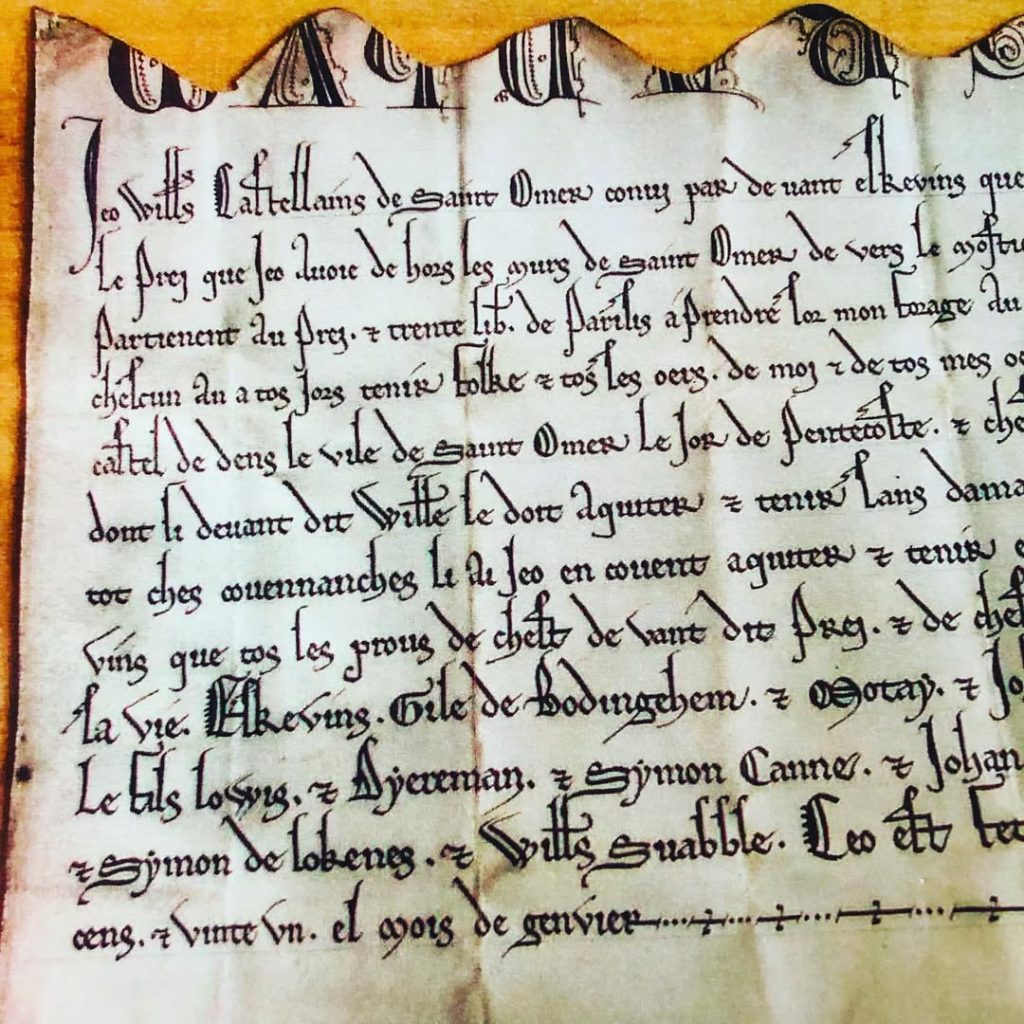 Jeo Will's Castellains de Saint Omer conuis par de uant eskevins que
Le Prei que Jeo Auoie de hors les murs de Saint Omer de vers le
partienent Au Prei. & trente lib. de Parisis a prendre sor mon forage Au
chescun An a tos Jors tenir & tos les oers. de moi & de tos mes
castel de dens le vile de Saint Omer Le Jor de Pentecoste. &
dont li deuant dit Will'e le doit Aquiter & tenir sans
tot ches couennanches li Ai Jeo en couent aquiter & tenir
vins que tos les prous de chest de vant dit Prei. & de
sa vie. Eskevins. Gile de Bodingehem. & &
Le fils lowis. & Ayereman. & Symon Canne. & Johan
& Symon de lokenes. & Will's Suabble. Ceo est
cens. & vinte vn. el Mois de genvier